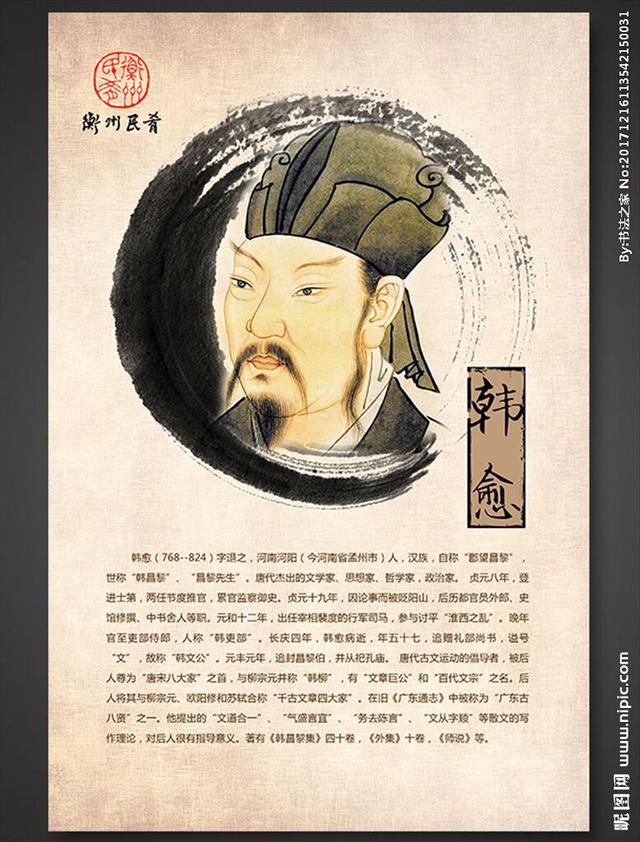 衡州民斋
衡州民肴
韩愈
韩愈（768--824）字退之，河南河阳（今河南省孟州市）人，汉族，自称“郡望昌黎”，
世称“韩昌黎”、“昌黎先生”。唐代杰出的文学家、思想家、哲学家，政治家。 贞元八年，登
进士第，两任节度推官，累官监察御史。贞元十九年，因论事而被贬阳山，后历都官员外郎、史
馆修撰、中书舍人等职。元和十二年，出任宰相裴度的行军司马，参与讨平“淮西之乱”。晚年
官至吏部侍郎，人称“韩吏部”。长庆四年，韩愈病逝，年五十七，追赠礼部尚书，谥号
“文”，故称“韩文公”。元丰元年，追封昌黎伯，并从祀孔庙。 唐代古文运动的倡导者，被后
人尊为“唐宋八大家”之首，与柳宗元并称“韩柳”，有“文章巨公”和“百代文宗”之名。后
人将其与柳宗元、欧阳修和苏轼合称“千古文章四大家”。在旧《广东通志》中被称为“广东古
八贤”之一。他提出的“文道合一”、“气盛言宜”、“务去陈言”、“文从字顺”等散文的写
作理论，对后人很有指导意义。著有《韩昌黎集》四十卷，《外集》十卷，《师说》等。
By:书法之家 No:20171216113542150031
昵图网 www.nipic.com